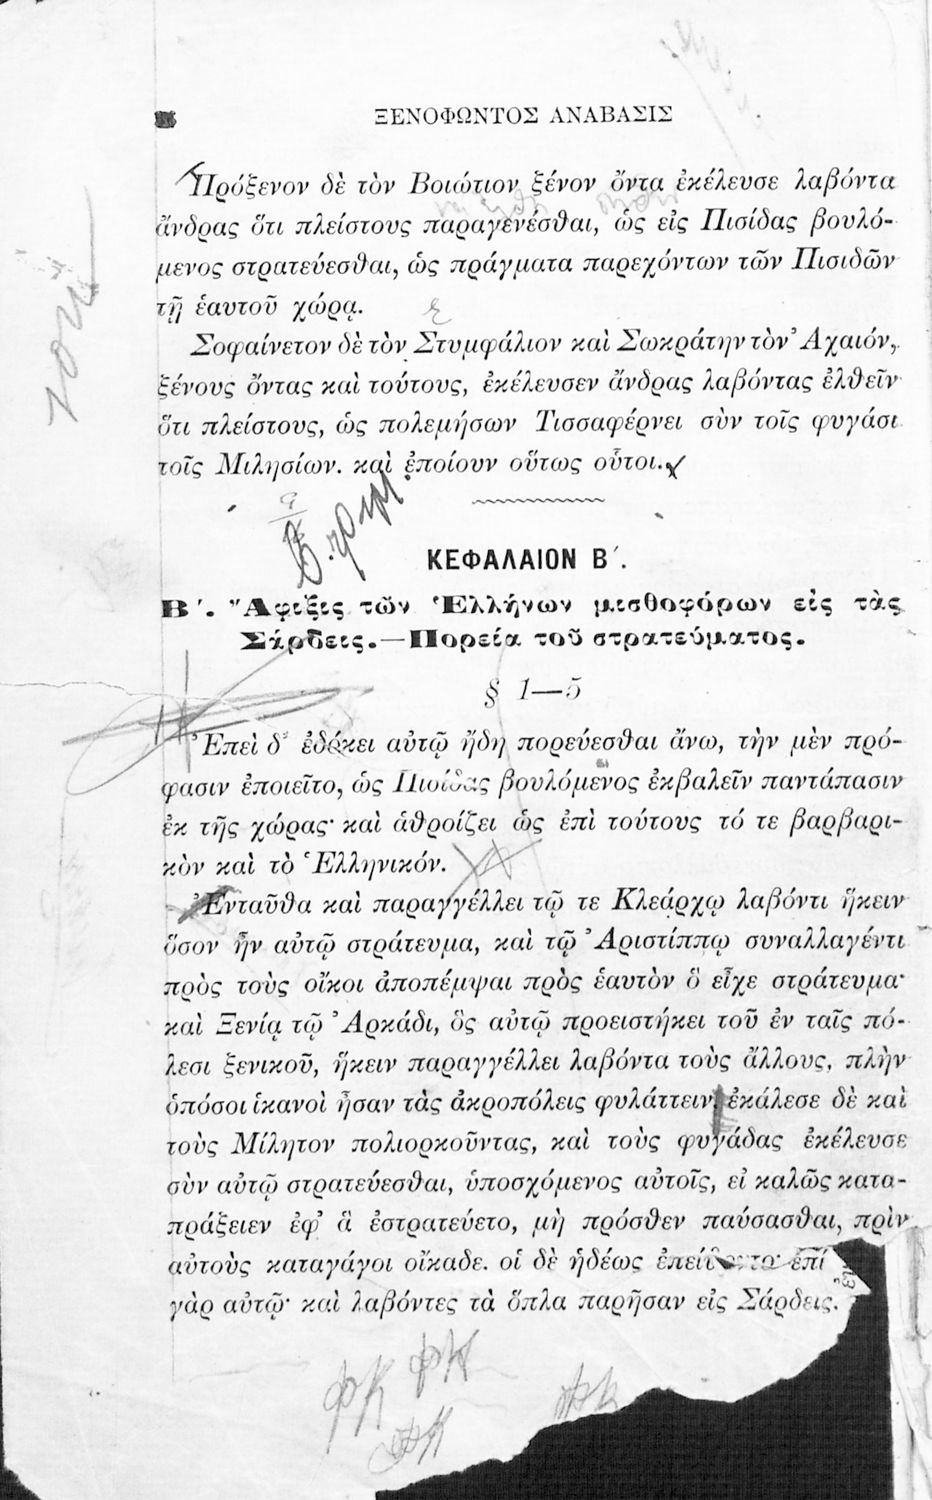 ΞΕΝΟΦΩΝΤΟΣ ΑΝΑΒΑΣΙΣ
Πρόξενον δὲ τὸν Βοιώτιον ξένον ὄντα ἐκέλευσε λαβόντα
ἄνδρας ὅτι πλείστους παραγενέσθαι, ὡς εἰς Πισίδας βουλό-
μενος στρατεύεσθαι, ὡς πράγματα παρεχόντων τῶν Πισιδῶν
τῇ ἑαυτοῦ χώρᾳ.
Σοφαίνετον δὲ τὸν Στυμφάλιον καὶ Σωκράτην τὸν Ἀχαιόν,
ξένους ὄντας καὶ τούτους, ἐκέλευσεν ἄνδρας λαβόντας ἐλθεῖν
ὅτι πλείστους, ὡς πολεμήσων Τισσαφέρνει σὺν τοῖς φυγάσι
τοῖς Μιλησίων. καὶ ἐποίουν οὕτως οὗτοι.
ΚΕΦΑΛΑΙΟΝ Β΄.
Β΄. Ἄφιξις τῶν Ἑλλήνων μισθοφόρων εἰς τὰς
Σάρδεις.—Πορεία τοῦ στρατεύματος.
§ 1—5
Ἐπεὶ δ' ἐδόκει αὐτῷ ἤδη πορεύεσθαι ἄνω, τὴν μὲν πρό-
φασιν ἐποιεῖτο, ὡς Πισίδας βουλόμενος ἐκβαλεῖν παντάπασιν
ἐκ τῆς χώρας· καὶ ἁθροίζει ὡς ἐπὶ τούτους τό τε βαρβαρι-
κὸν καὶ τὸ Ἑλληνικόν.
Ἐνταῦθα καὶ παραγγέλλει τῷ τε Κλεάρχῳ λαβόντι ἥκειν
ὅσον ἦν αὐτῷ στράτευμα, καὶ τῷ Ἀριστίππῳ συναλλαγέντι
πρὸς τοὺς οἴκοι ἀποπέμψαι πρὸς ἑαυτὸν ὃ εἶχε στράτευμα·
καὶ Ξενίᾳ τῷ Ἀρκάδι, ὃς αὐτῷ προειστήκει τοῦ ἐν ταῖς πό-
λεσι ξενικοῦ, ἥκειν παραγγέλλει λαβόντα τοὺς ἄλλους, πλὴν
ὁπόσοι ἱκανοὶ ἦσαν τὰς ἀκροπόλεις φυλάττειν, ἐκάλεσε δὲ καὶ
τοὺς Μίλητον πολιορκοῦντας, καὶ τοὺς φυγάδας ἐκέλευσε
σὺν αὐτῷ στρατεύεσθαι, ὑποσχόμενος αὐτοῖς, εἰ καλῶς κατα-
πράξειεν ἐφ' ἃ ἐστρατεύετο, μὴ πρόσθεν παύσασθαι, πρὶν
αὐτοὺς καταγάγοι οἴκαδε. οἱ δὲ ἡδέως ἐπείθοντο· ἐπί
γὰρ αὐτῷ· καὶ λαβόντες τὰ ὅπλα παρῆσαν εἰς Σάρδεις.
ΦΚ ΦΚ